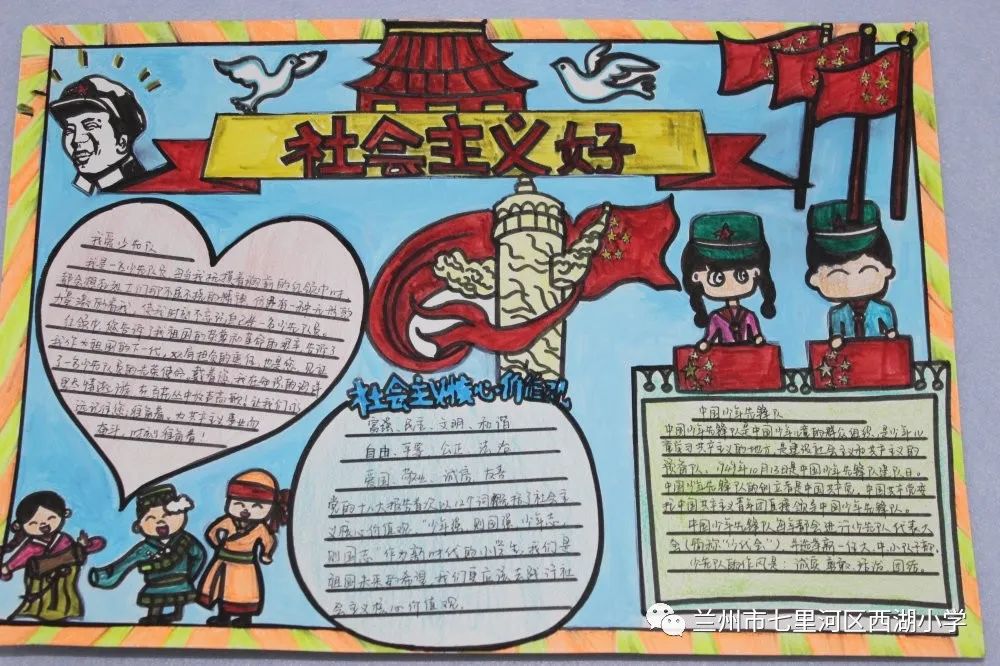 社会主义好
我爱少先队
我是一名少先队员,每当我抚摸着胸前的红领巾时
红领巾,您告诉了我祖国的荣誉和革命的艰辛,告诉了
我作为祖国的下一代,
奋斗,时刻准备着!
社会主义核心价值观
富强、民主、文明、和谐
自由、平等、公正、法治
爱国、敬业、诚信、友善
党的十八大报告首次以12个词概括了社会主
义核心价值观。"少年强,则国强,少年志,
则国志"作为新时代的小学生,我们是
祖国未来的希望,我们更应该去践行社
会主义核心价值观。
中国少年先锋队
中国少年先锋队是中国少年儿童的群众组织,是少年儿
童学习共产主义的地方,是建设社会主义和共产主义的
预备队,1949年10月13日是中国少年先锋队建队日。
中国少年先锋队的创立者是中国共产党,中国共产党委
托中国共产主义青年团直接领导中国少年先锋队。
中国少年先锋队每年都会进行少先队代表大
会(简称"少代会")
少先队的作风是:诚实、勇敢、活泼、团结。
兰州市七里河区西湖小学